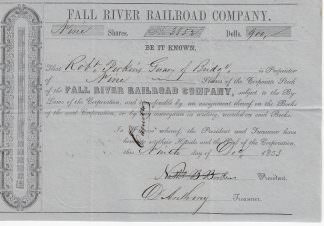 FALL RIVER RAILROAD COMPANY.
Nine Shares. 3852 Dolls. 900,
BE IT KNOWN,
That Robt Perkins of is Proprietor
of Nine Shares of the Corporate Stock
of the FALL RIVER RAILROAD COMPANY, subject to the By
Laws of the Corporation, and transferable by an assignment thereof on the Books
of the said Corporation, or by an assignment in writing, recorded on said Books.
In Witness whereof, the President and Treasurer have
hereunto written their Names and the Seal of the Corporation
this Ninth day of Dec. 1853
President.
D Anthony
Treasurer.